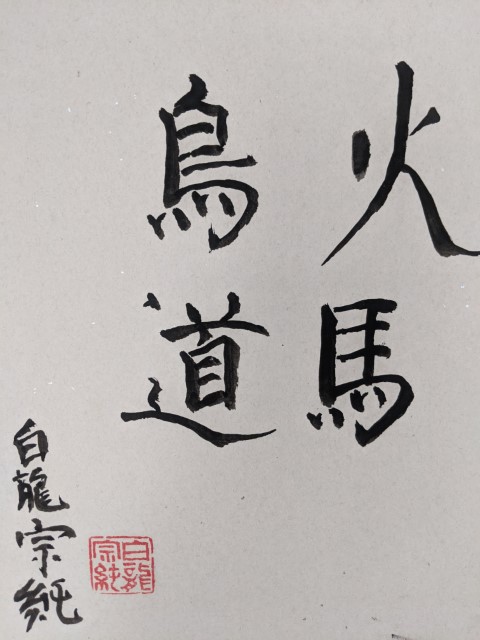 火馬
鳥道
白龍宗純
白龍
宗純